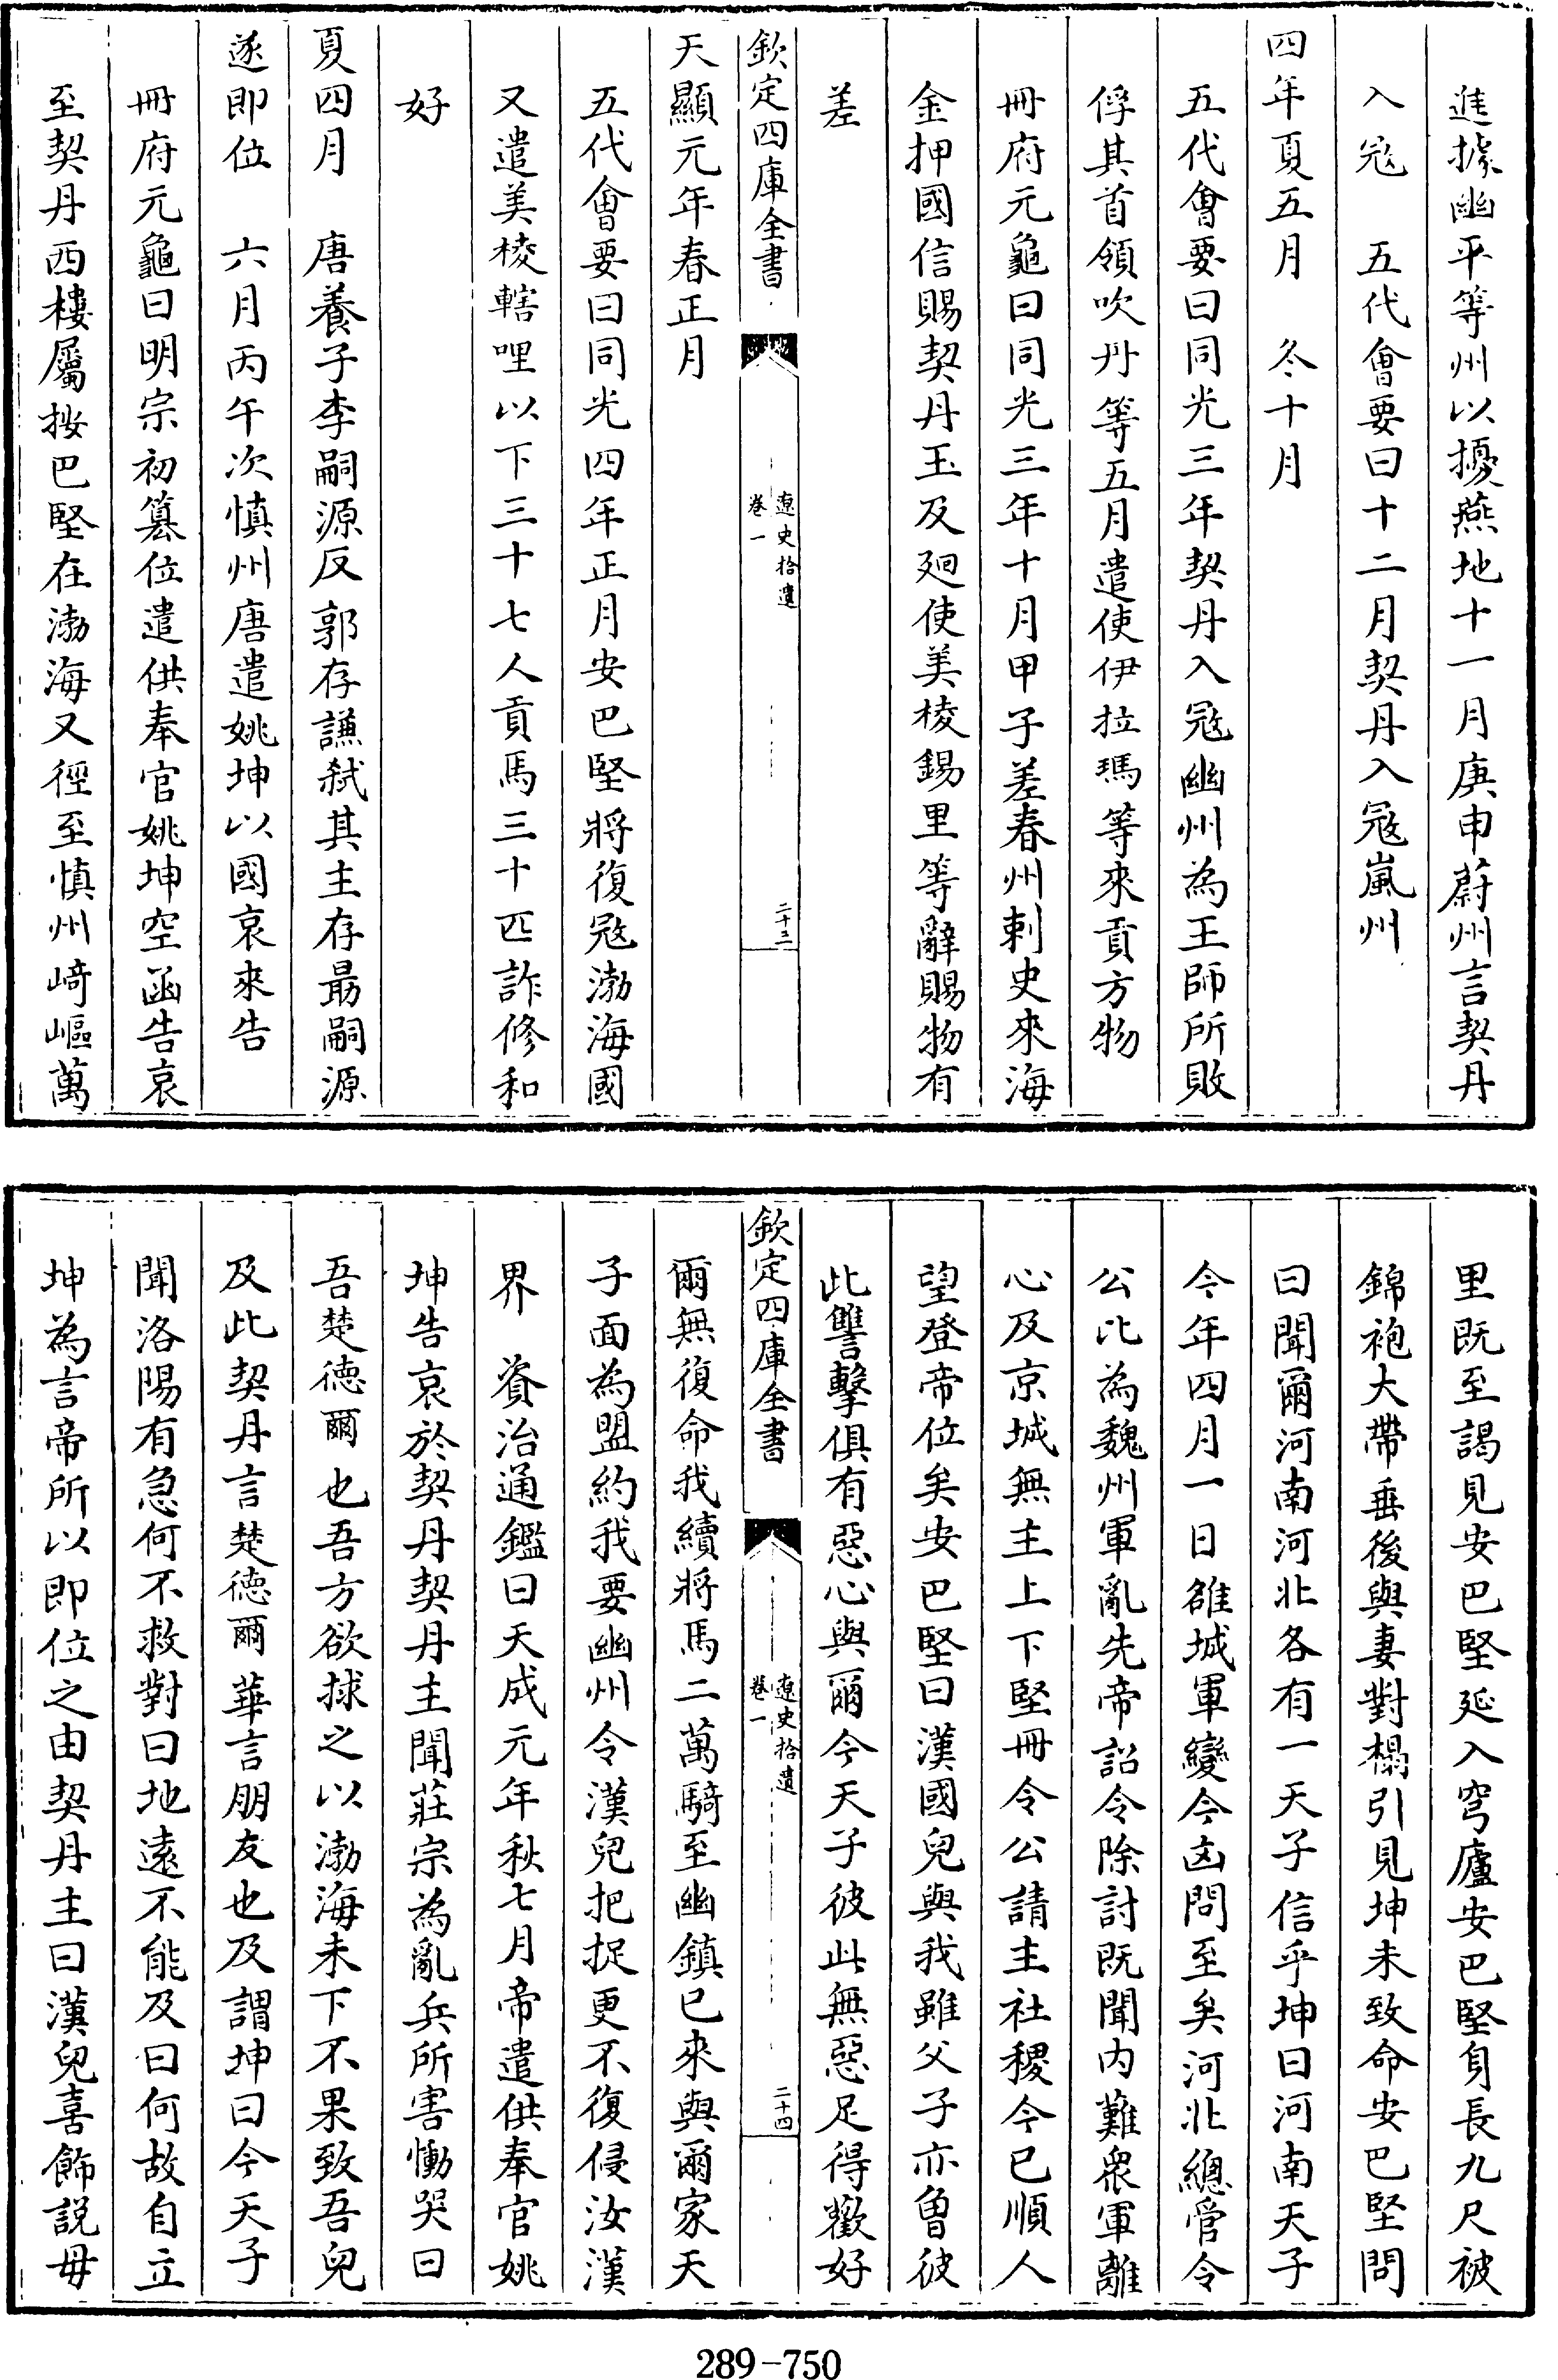 進據幽平等州以擾燕地十一月庚申蔚州言契丹
入冦　五代會要曰十二月契丹入冦嵐州
四年夏五月　冬十月
五代會要曰同光三年契丹入冦幽州為王師所敗
俘其首領吹丹等五月遣使伊拉瑪等來貢方物
冊府元龜曰同光三年十月甲子差春州刺史來海
金押國信賜契丹王及廻使美棱錫里等辭賜物有
差
欽定四庫全書
遼史拾遺
卷一
二十三
天顯元年春正月
五代會要曰同光四年正月安巴堅將復冦渤海國
又遣美棱轄哩以下三十七人貢馬三十匹詐修和
好
夏四月　唐養子李嗣源反郭存謙弑其主存勗嗣源
遂即位　六月丙午次慎州唐遣姚坤以國哀來告
冊府元龜曰明宗初簒位遣供奉官姚坤空函告哀
至契丹西樓屬按巴堅在渤海又徑至慎州崎嶇萬
里既至謁見安巴堅延入穹廬安巴堅身長九尺被
錦袍大帶垂後與妻對榻引見坤未致命安巴堅問
曰聞爾河南河北各有一天子信乎坤曰河南天子
今年四月一日雒城軍變今凶問至矣河北總管令
公比為魏州軍亂先帝詔令除討既聞内難衆軍離
心及京城無主上下堅冊令公請主社稷今已順人
望登帝位矣安巴堅曰漢國兒與我雖父子亦曾彼
此讐擊俱有惡心與爾今天子彼此無惡足得歡好
欽定四庫全書
遼史拾遺
卷一
二十四
爾無復命我續將馬二萬騎至幽鎮已來與爾家天
子面為盟約我要幽州令漢兒把捉更不復侵汝漢
界　資治通鑑曰天成元年秋七月帝遣供奉官姚
坤告哀於契丹契丹主聞莊宗為亂兵所害慟哭曰
吾楚德爾也吾方欲捄之以渤海未下不果致吾兒
及此契丹言楚德爾華言朋友也及謂坤曰今天子
聞洛陽有急何不救對曰地遠不能及曰何故自立
坤為言帝所以即位之由契丹主曰漢兒喜飾説毋
289-750